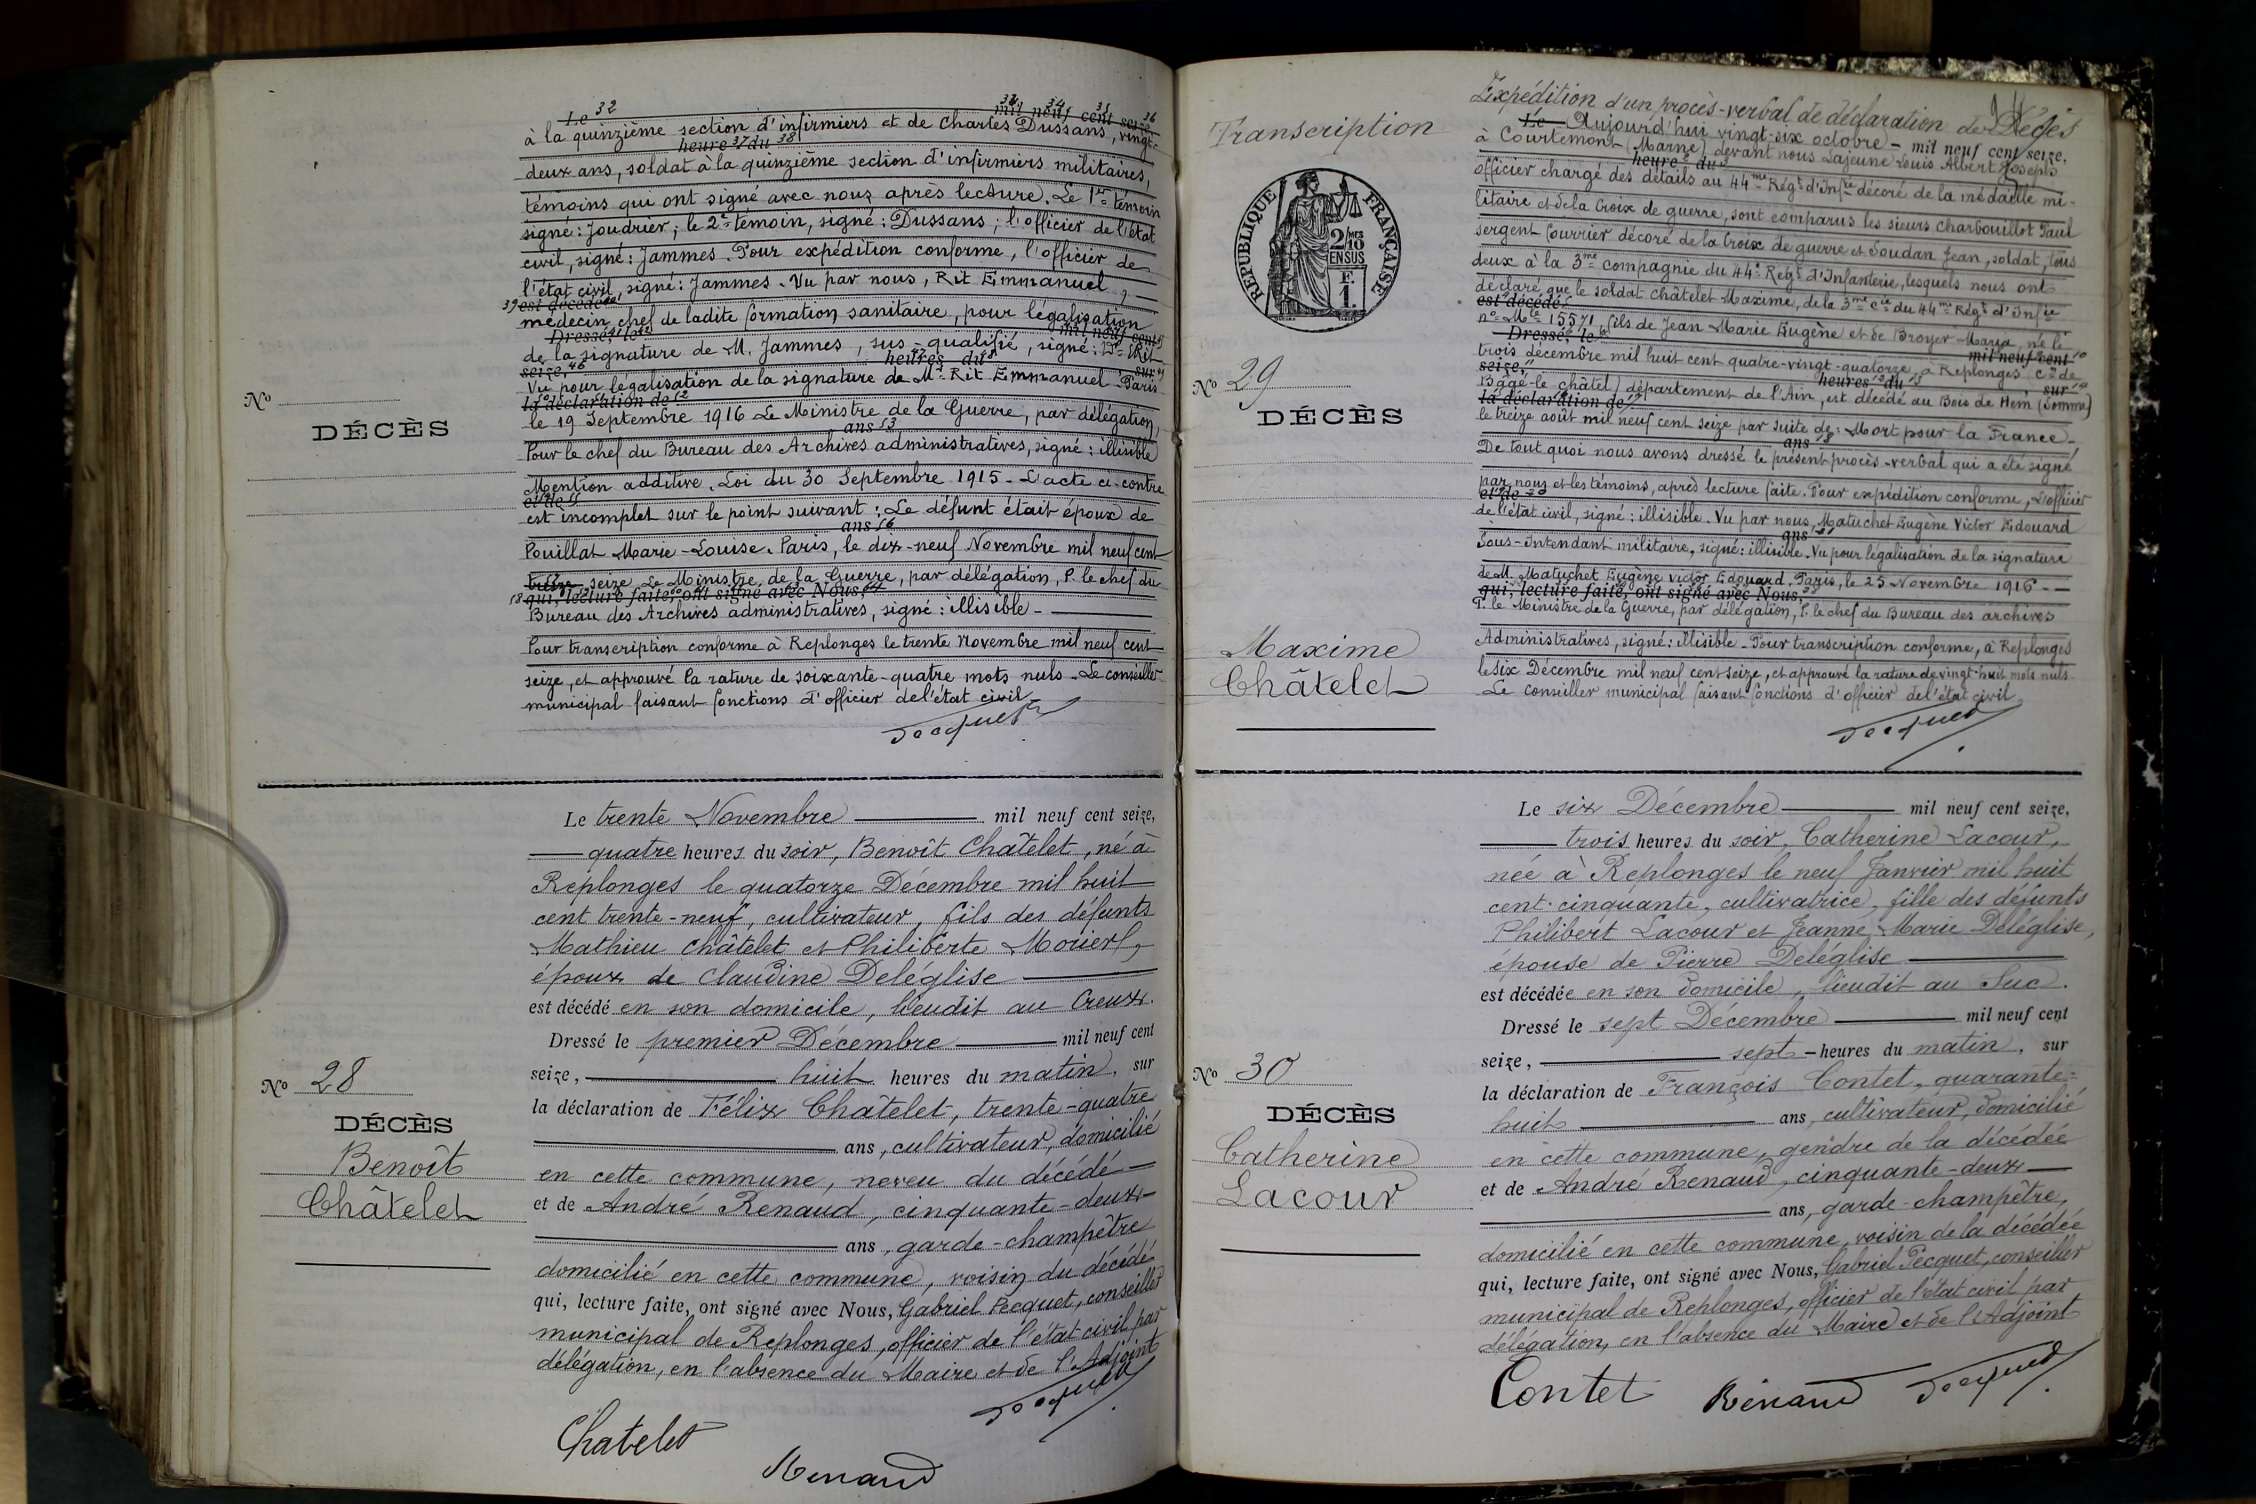 Le 32 mil neuf cent seize 36
à la quinzième section d'infirmiers et de Charles Dussans, vingt-
heure 37 du 38
deux ans, soldat à la quinzième section d'infirmiers militaires,
témoins qui ont signé avec nous après lecture. Le 1er témoin
signé : Joudrier ; le 2e témoin, signé : Dussans ; l'officier de l'état
civil, signé : Jammes. Pour expédition conforme, l'officier de
l'état civil, signé : Jammes. Vu par nous, Rit Emmanuel,
39 est décédé
médecin chef de ladite formation sanitaire, pour légalisation
Dressé le mil neuf cent
de la signature de M. Jammes, sus-qualifié, signé : Dr Rit
seize, 46 heures du sur
Vu pour légalisation de la signature de Mr Rit Emmanuel Paris
la déclaration de 52
le 19 Septembre 1916 Le Ministre de la Guerre, par délégation,
ans 53
Pour le chef du Bureau des Archives administratives, signé : illisible
Mention additive. Loi du 30 Septembre 1915 - L'acte ci-contre
et de 55
est incomplet sur le point suivant : Le défunt était époux de
ans 56
Pouillat Marie-Louise. Paris, le dix-neuf Novembre mil neuf cent
seize Le Ministre de la Guerre, par délégation, P. le chef du
qui, lecture faite, ont signé avec Nous, 64
Bureau des Archives administratives, signé : illisible -
Pour transcription conforme à Replonges le trente Novembre mil neuf cent
seize, et approuvé la rature de soixante-quatre mots nuls - Le conseiller
municipal faisant fonctions d'officier de l'état civil
Pecquet
No
DÉCÈS
Le trente Novembre mil neuf cent seize,
quatre heures du soir, Benoît Châtelet, né à
Replonges le quatorze Décembre mil huit
cent trente-neuf, cultivateur, fils des défunts
Mathieu Châtelet et Philiberte Morier,
époux de Claudine Deléglise
est décédé en son domicile, lieudit au Creux.
Dressé le premier Décembre mil neuf cent
seize, huit heures du matin, sur
la déclaration de Félix Châtelet, trente-quatre
ans, cultivateur, domicilié
en cette commune, neveu du décédé
et de André Renaud, cinquante-deux
ans, garde-champêtre
domicilié en cette commune, voisin du décédé
qui, lecture faite, ont signé avec Nous, Gabriel Pecquet, conseiller
municipal de Replonges, officier de l'état civil par
délégation, en l'absence du Maire et de l'Adjoint
Pecquet
Chatelet
Renaud
No 28
DÉCÈS
Benoît
Châtelet
Transcription
RÉPUBLIQUE FRANÇAISE
2/10 MES
EN SUS
F.
1.
No 29
DÉCÈS
Maxime
Châtelet
Expédition d'un procès-verbal de déclaration de Décès
Le Aujourd'hui vingt-six octobre - mil neuf cent seize,
à Courtemont (Marne) devant nous Lajeune Louis Albert Joseph
heure du
officier chargé des détails au 44me Régt d'Infie décoré de la médaille mi-
litaire et de la Croix de guerre, sont comparus les sieurs Charbouillot Paul
sergent fourrier décoré de la Croix de guerre et Soudan Jean, soldat, tous
deux à la 3me compagnie du 44e Régt d'Infanterie, lesquels nous ont
déclaré que le soldat Châtelet Maxime, de la 3me Cie du 44me Régt d'Infie
est décédé
no Mle 15571 fils de Jean Marie Eugène et de Broyer Maria, né le
Dressé le mil neuf cent 10
trois décembre mil huit cent quatre-vingt-quatorze, à Replonges con de
seize, 11 heures 12 du 13 sur 14
Bâgé-le-Châtel) département de l'Ain, est décédé au Bois de Hem (Somme)
la déclaration de 17
le treize août mil neuf cent seize par suite de : Mort pour la France -
ans 18
De tout quoi nous avons dressé le présent procès-verbal qui a été signé
par nous et les témoins, après lecture faite. Pour expédition conforme, L'officier
et de 20
de l'état civil, signé : illisible. Vu par nous, Matuchet Eugène Victor Edouard
ans 21
Sous-Intendant militaire, signé : illisible. Vu pour légalisation de la signature
de M. Matuchet Eugène Victor Edouard. Paris, le 25 Novembre 1916 -
qui, lecture faite, ont signé avec Nous, 28
P. le Ministre de la Guerre, par délégation, P. le chef du Bureau des archives
Administratives, signé : illisible - Pour transcription conforme, à Replonges
le six Décembre mil neuf cent seize, et approuvé la rature de vingt-huit mots nuls.
Le conseiller municipal faisant fonctions d'officier de l'état civil
Pecquet
Le six Décembre mil neuf cent seize,
trois heures du soir, Catherine Lacour,
née à Replonges le neuf Janvier mil huit
cent cinquante, cultivatrice, fille des défunts
Philibert Lacour et Jeanne Marie Deléglise,
épouse de Pierre Deléglise
est décédée en son domicile, lieudit au Suc.
Dressé le sept Décembre mil neuf cent
seize, sept heures du matin, sur
la déclaration de François Contet, quarante-
huit ans, cultivateur, domicilié
en cette commune, gendre de la décédée
et de André Renaud, cinquante-deux
ans, garde-champêtre,
domicilié en cette commune, voisin de la décédée
qui, lecture faite, ont signé avec Nous, Gabriel Pecquet, conseiller
municipal de Replonges, officier de l'état civil par
délégation, en l'absence du Maire et de l'Adjoint
Contet Renaud Pecquet
No 30
DÉCÈS
Catherine
Lacour